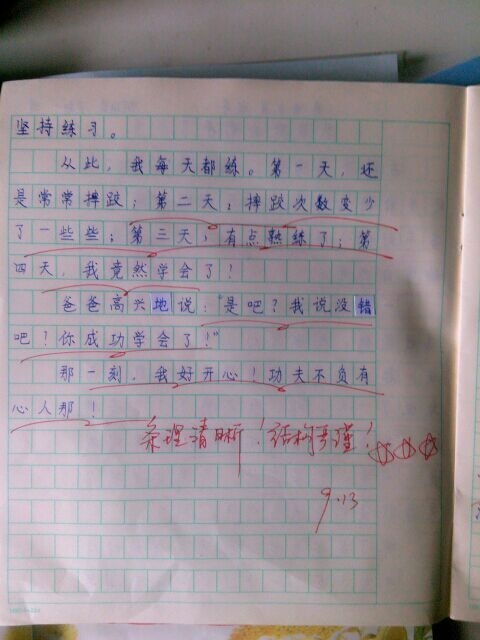 坚持练习。
从此，我每天都练。第一天，还
是常常摔跤；第二天，摔跤次数变少
了一些些；第三天，有点熟练了；第
四天，我竟然学会了！
爸爸高兴地说：“是吧？我说没错
吧？你成功学会了！”
那一刻，我好开心！功夫不负有
心人那！
条理清晰！结构严谨！
9.13